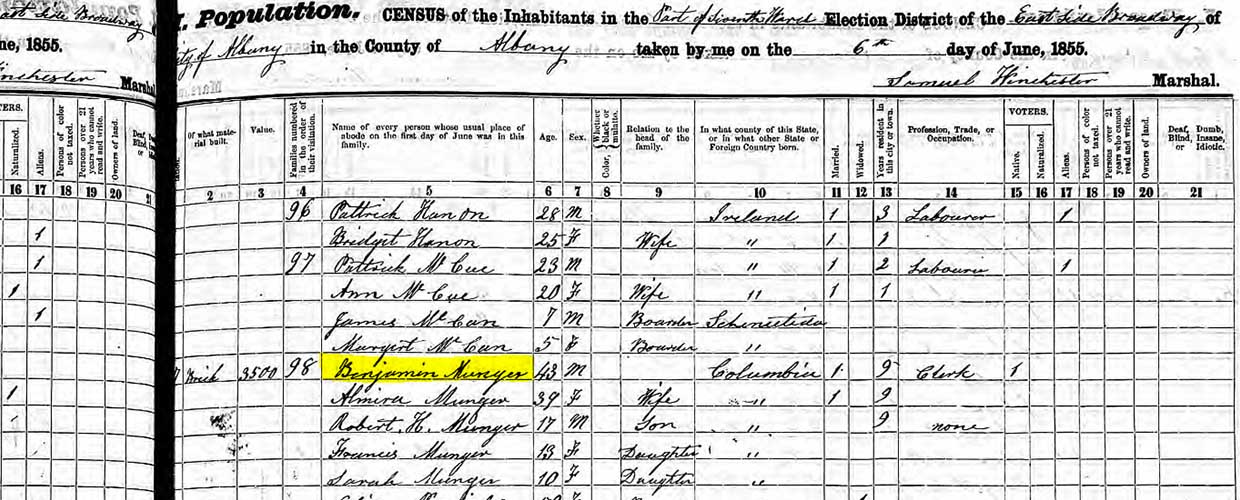 East Side Broadway
I. Population. CENSUS of the Inhabitants in the Part of Seventh Ward Election District of the East Side Broadway of
ne, 1855.
City of Albany in the County of Albany taken by me on the 6th day of June, 1855.
inchester Marshal
Samuel Winchester Marshal.
TERS.
Naturalized. Aliens. Persons of color not taxed. Persons over 21 years who cannot read and write. Owners of land. Deaf, Blind, or
Of what material built. Value. Families numbered in the order of their visitation. Name of every person whose usual place of abode on the first day of June was in this family. Age. Sex. Color, Whether black or mulatto. Relation to the head of the family. In what county of this State, or in what other State or Foreign Country born. Married. Widowed. Years resident in this city or town. Profession, Trade, or Occupation. VOTERS. Native. Naturalized. Aliens. Persons of color not taxed. Persons over 21 years who cannot read and write. Owners of land. Deaf, Dumb, Blind, Insane, or Idiotic.
16 17 18 19 20 21
2 3 4 5 6 7 8 9 10 11 12 13 14 15 16 17 18 19 20 21
96 Pattrick Hanon 28 M Ireland 1 3 Labourer 1
1 Bridget Hanon 25 F Wife " 1 1
1 97 Pattrick McCue 23 M " 1 2 Labourer 1
1 Ann McCue 20 F Wife " 1 1
1 James McCan 7 M Boarder Schenectida
Margert McCan 5 F Boarder "
Brick 3500 98 Benjamin Munger 43 M Columbia 1 9 Clerk 1
1 Almira Munger 39 F Wife " 1 9
1 Robert H. Munger 17 M Son " 9 none
Francis Munger 13 F Daughter "
Sarah Munger 10 F Daughter "